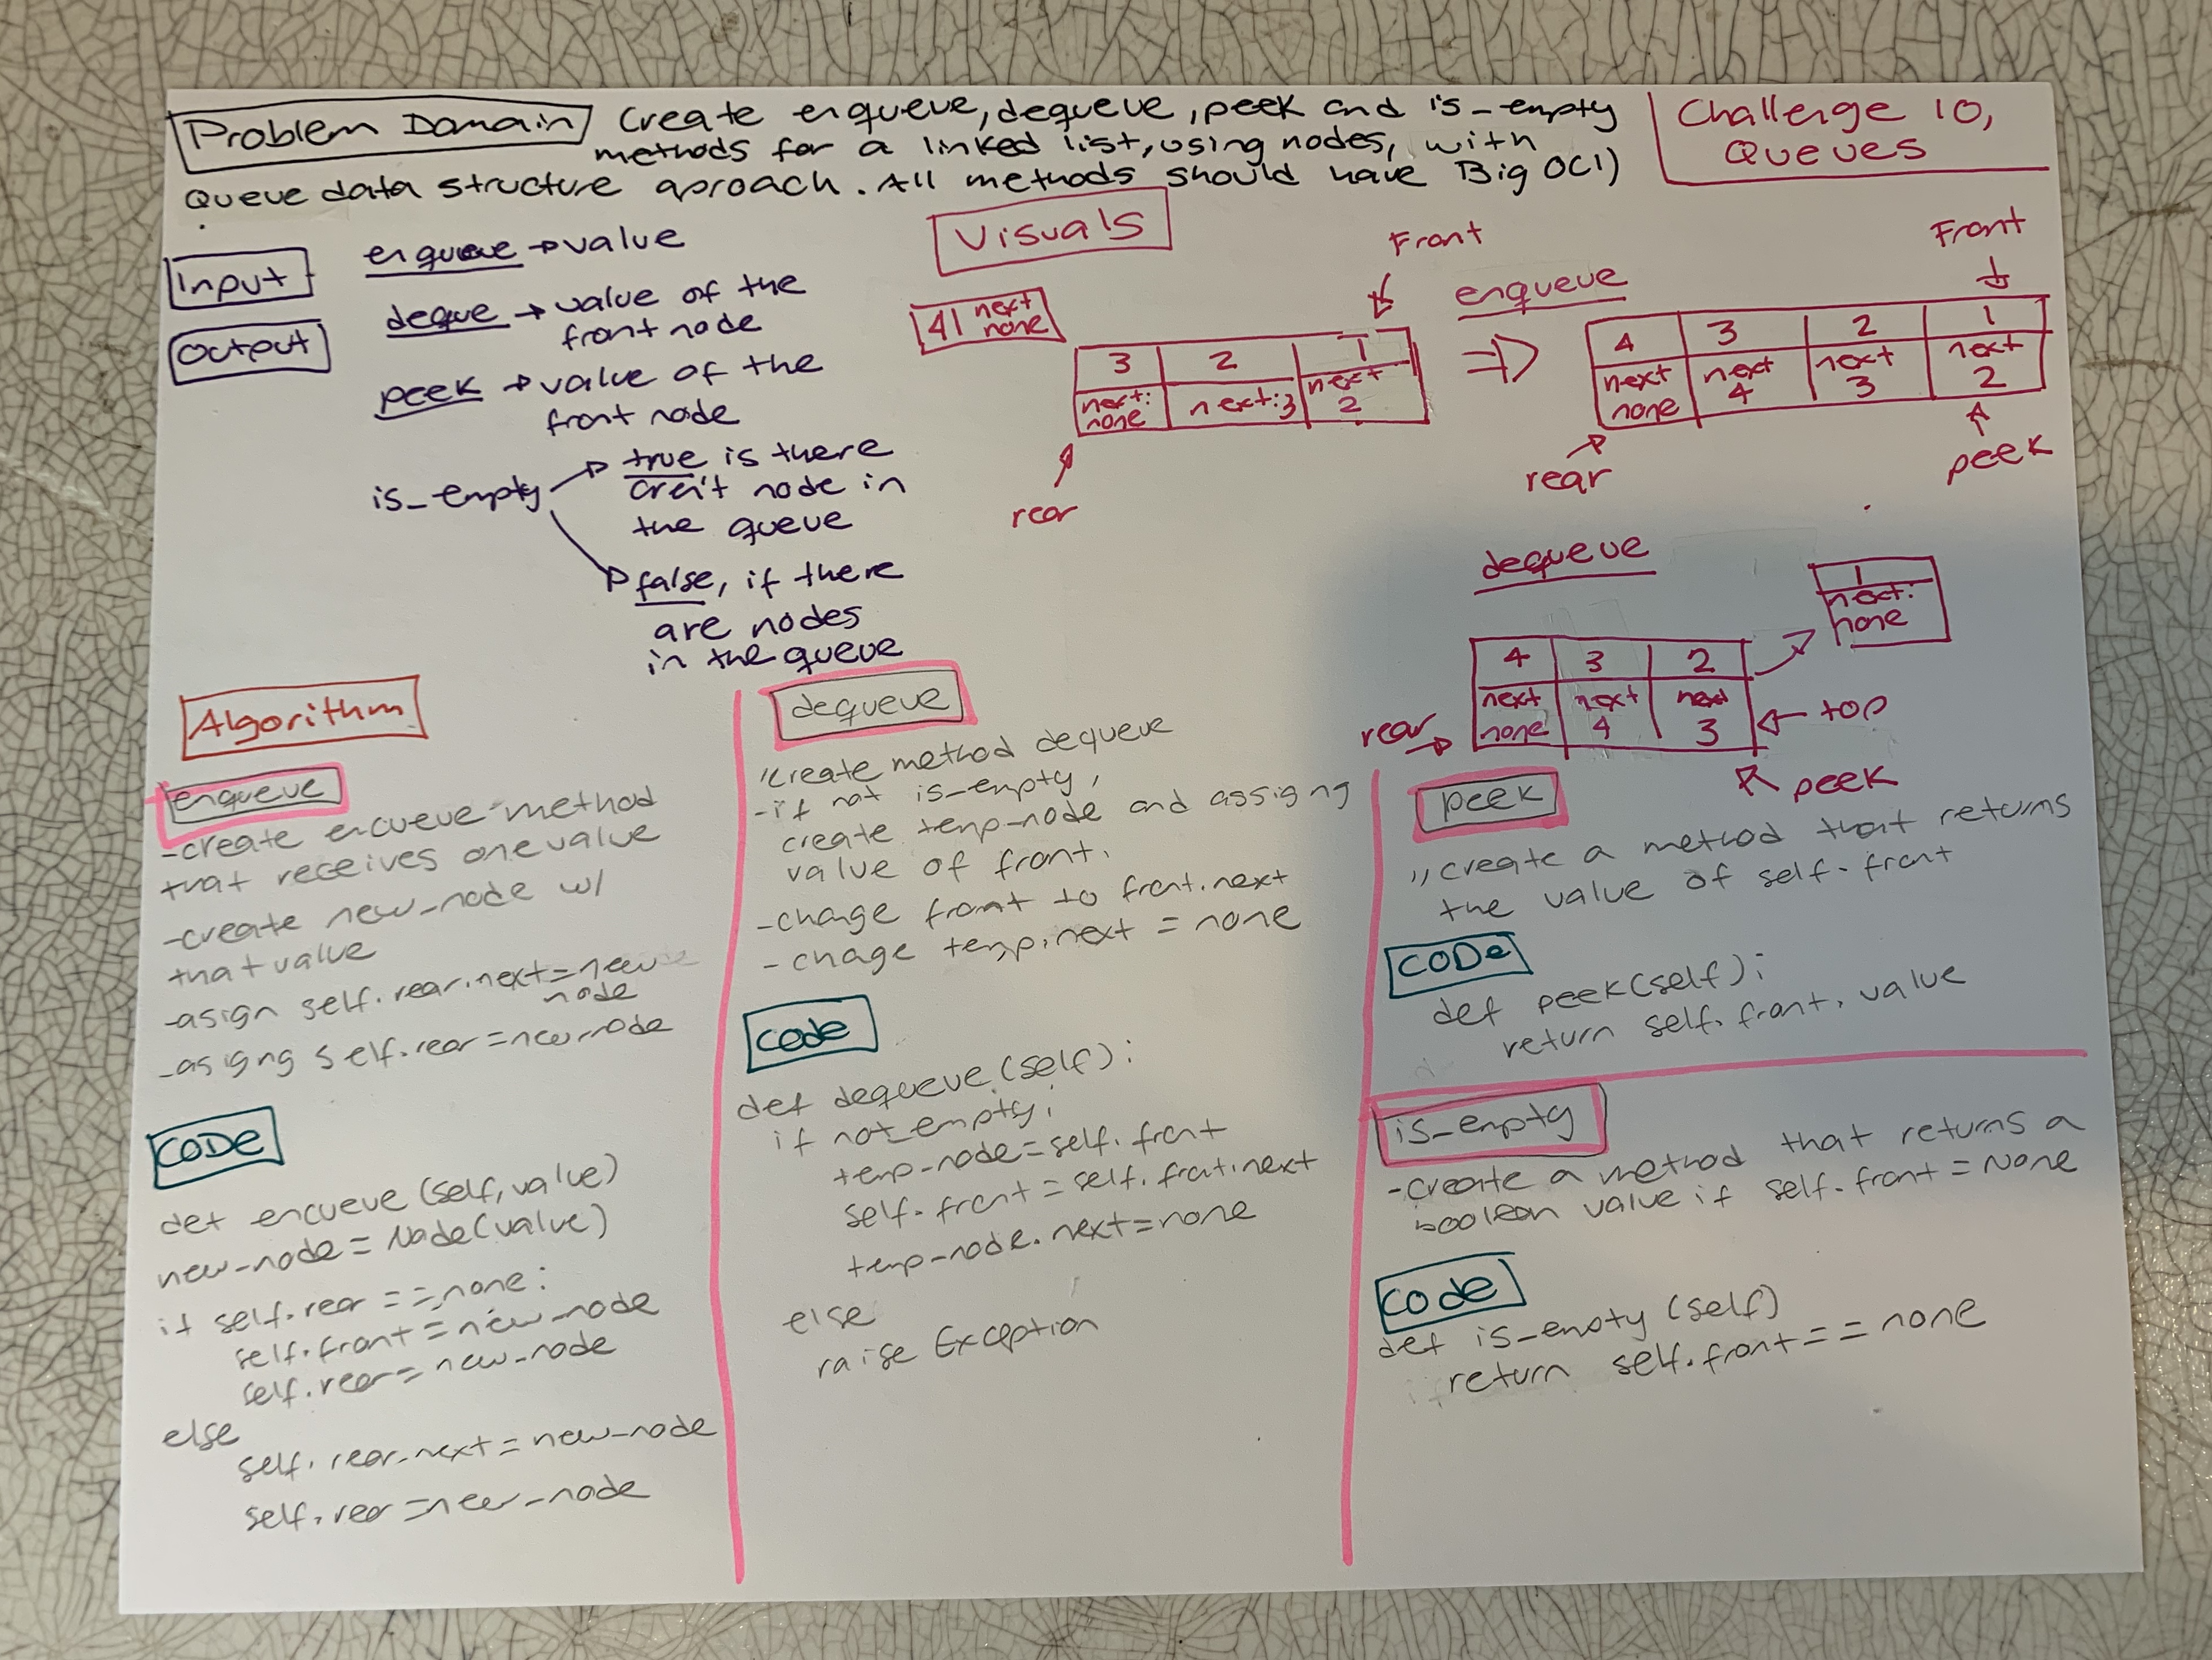 Problem Domain Create enqueue, dequeue, peek and is_empty
methods for a linked list, using nodes, with
Queue data structure aproach. All methods should have Big O(1)
Challenge 10,
Queues
Input
Output
enqueue → value
deque → value of the
front node
peek → value of the
front node
is_empty
true is there
aren't node in
the queue
false, if there
are nodes
in the queue
Visuals
4 | next
none
Front
3 2 1
next: none next: 3 next 2
rear
enqueue
⇒
Front
4 3 2 1
next next next next
none 4 3 2
rear
peek
dequeue
1
next:
none
4 3 2
next next next
none 4 3
rear →
← top
peek
Algorithm
enqueue
-create encueue method
that receives one value
-create new_node w/
that value
-asign self.rear.next = new
node
-asigng self.rear = new_node
CODE
def encueue (self, value)
new_node = Node(value)
if self.rear == none:
self.front = new_node
self.rear = new_node
else
self.rear.next = new_node
self.rear = new_node
dequeue
create method dequeue
-if not is_empty,
create temp-node and assigng
value of front.
-change front to front.next
- chage temp.next = none
code
def dequeue (self):
if not_empty:
temp-node = self.front
self.front = self.front.next
temp-node.next = none
else
raise Exception
peek
,, create a method that returns
the value of self.front
CODe
def peek(self):
return self.front.value
is_empty
-create a method that returns a
boolean value if self.front = None
code
def is_empty (self)
return self.front == none